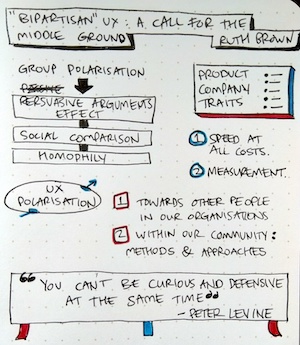 "BIPARTISAN" UX : A CALL FOR THE
MIDDLE GROUND
RUTH BROWN
GROUP POLARISATION
PERSUASIVE ARGUMENTS
EFFECT
SOCIAL COMPARISON
HOMOPHILY
PRODUCT
COMPANY
TRAITS
1 SPEED AT
ALL COSTS.
2 MEASUREMENT.
UX
POLARISATION
1 TOWARDS OTHER PEOPLE
IN OUR ORGANISATIONS
2 WITHIN OUR COMMUNITY :
METHODS & APPROACHES
"YOU CAN'T BE CURIOUS AND DEFENSIVE
AT THE SAME TIME"
- PETER LEVINE